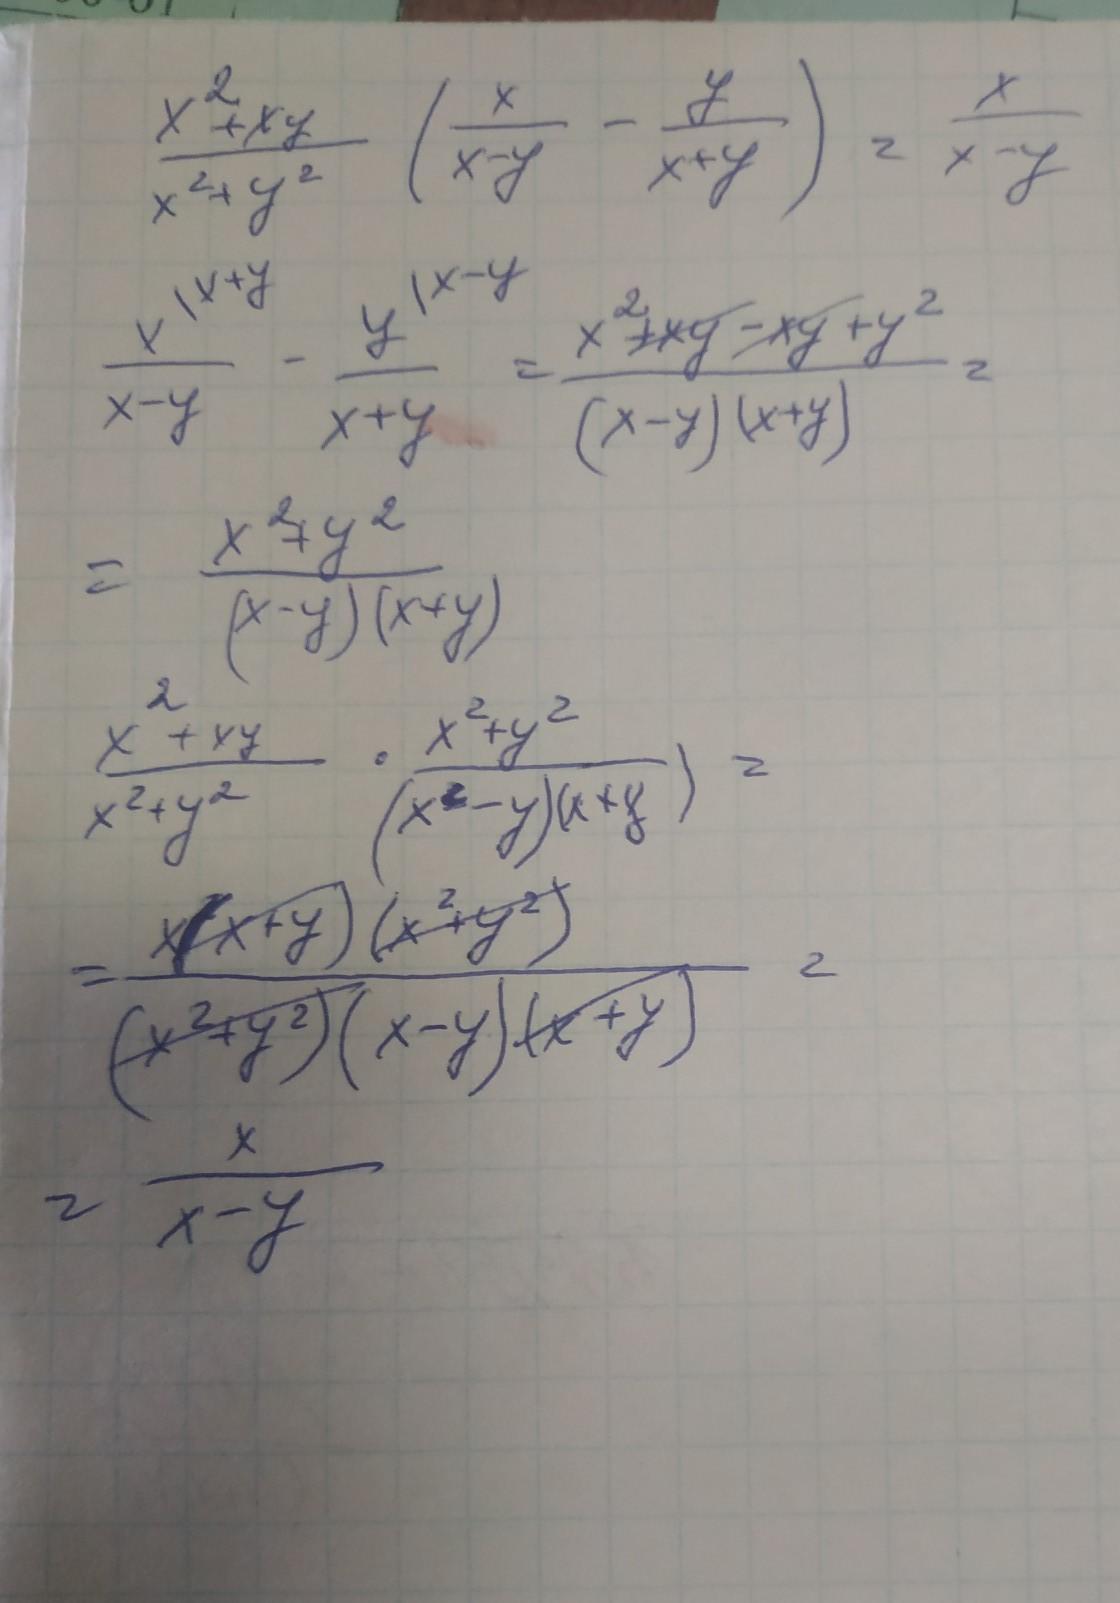 x²+xy / x²+y² ( x / x-y - y / x+y ) = x / x-y
x \x+y / x-y - y \x-y / x+y = x²+xy-xy+y² / (x-y)(x+y) =
= x²+y² / (x-y)(x+y)
x²+xy / x²+y² · x²+y² / (x²-y)(x+y) ) =
= x(x+y)(x²+y²) / (x²+y²)(x-y)(x+y) =
= x / x-y